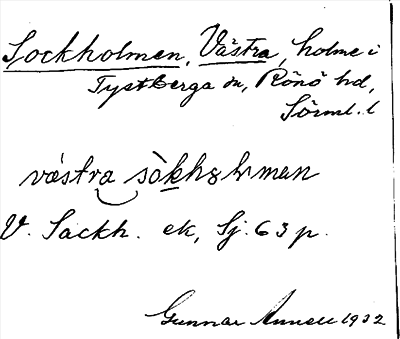 Sockholmen, Västra, holme i
Tystberga sn, Rönö hd,
Sörml. l
västra sòkhɷlmən
V. Sackh. ek, Sj. 63 p.
Gunnar Annell 1932